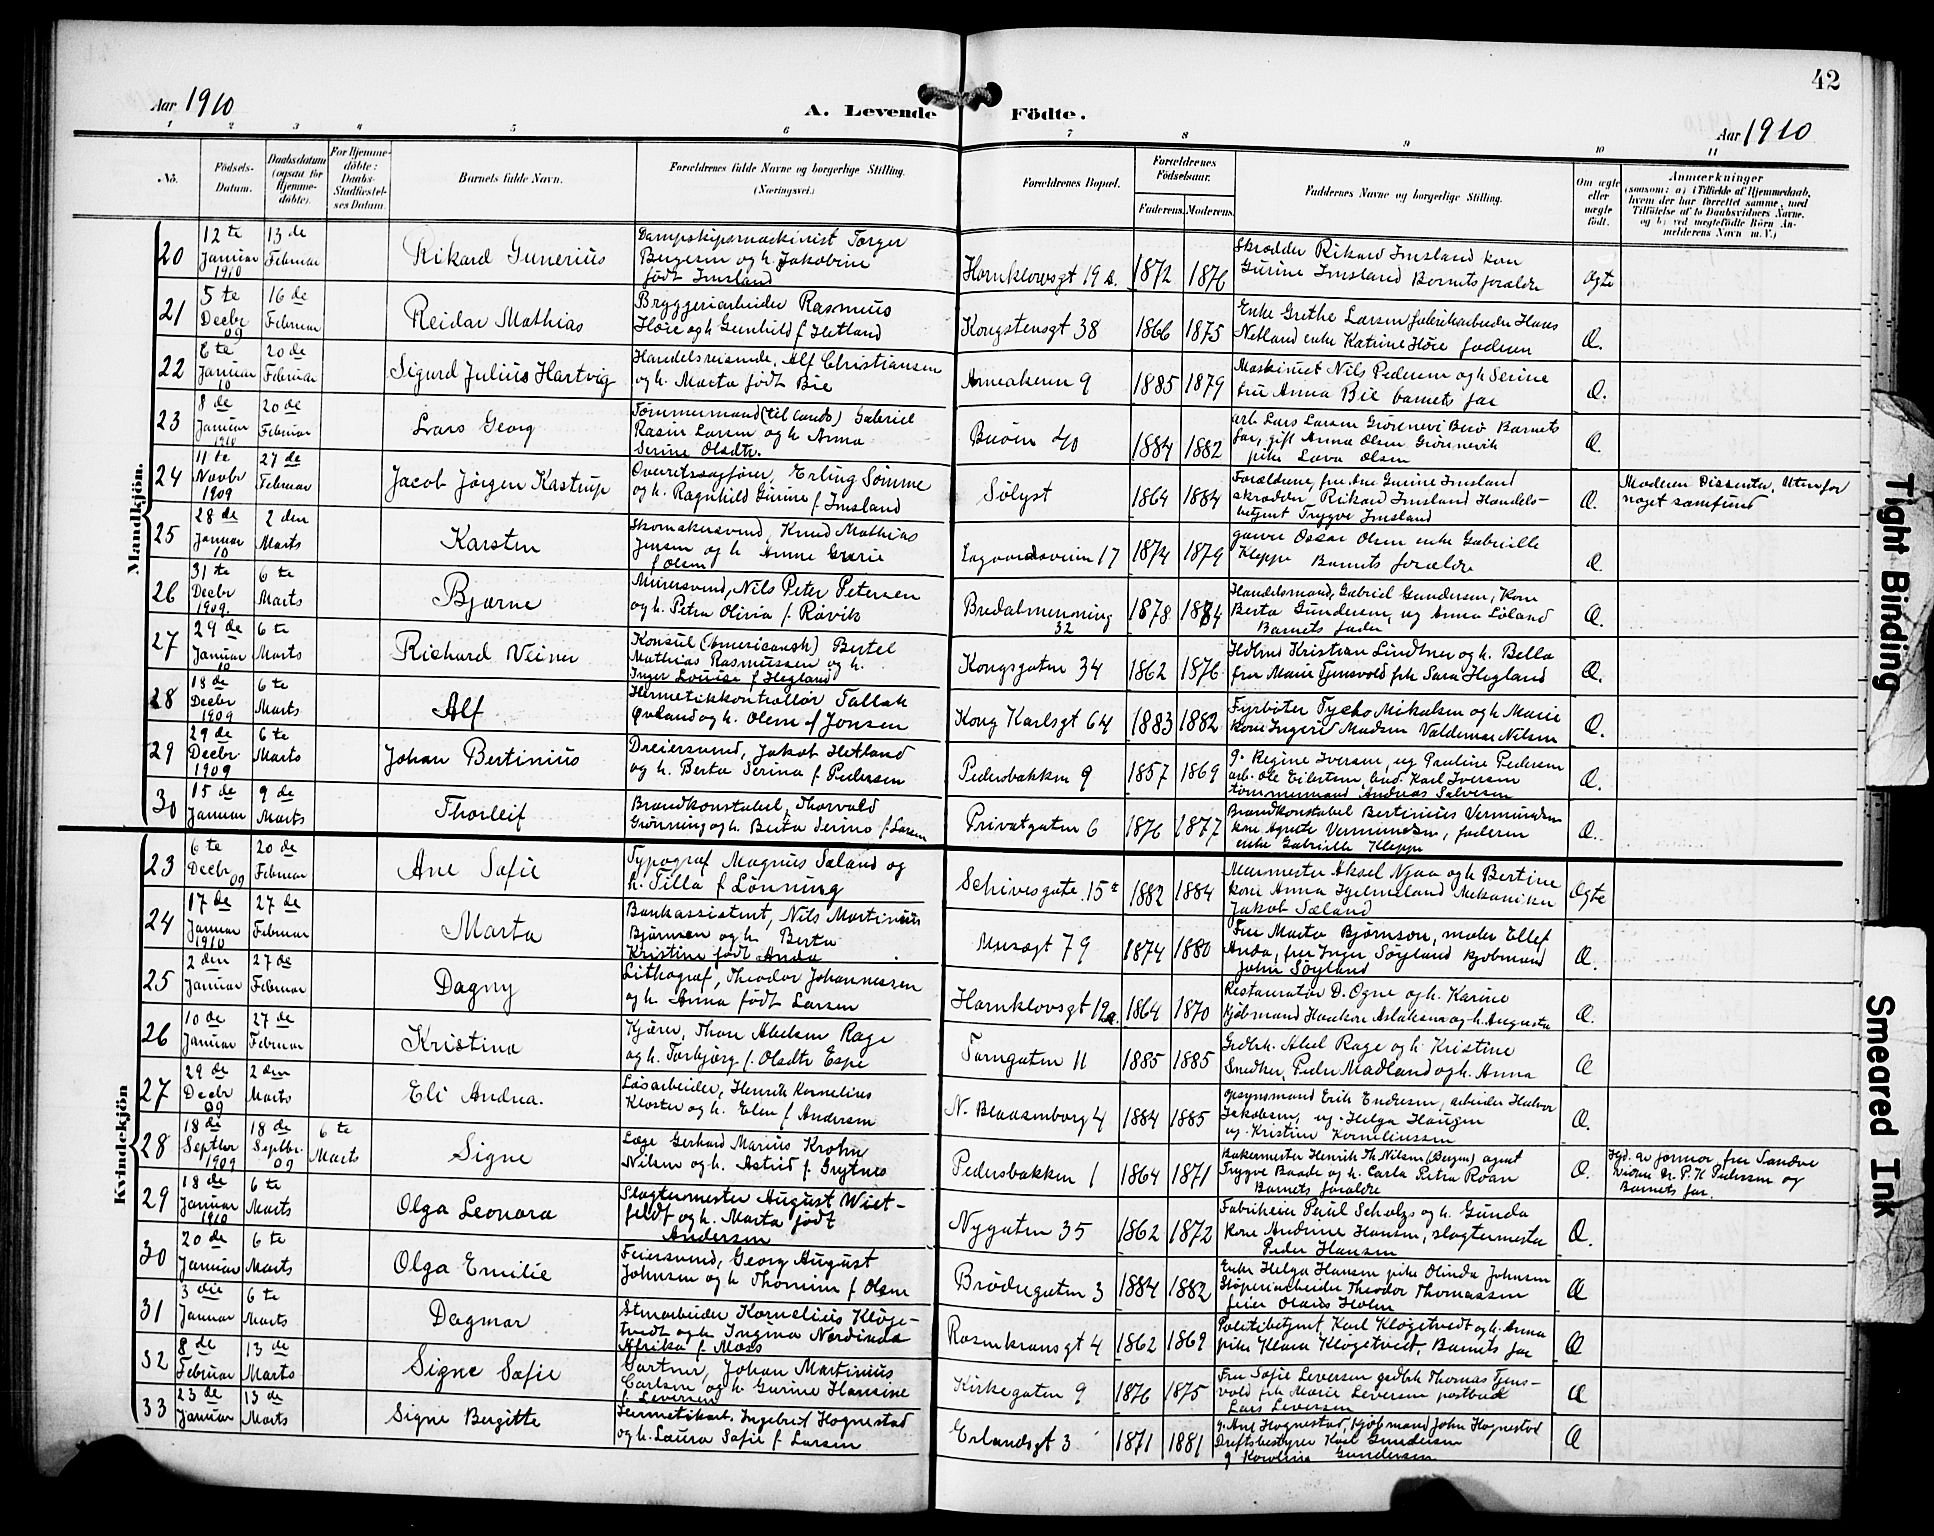 42
Aar 1910
A. Levende Födte.
Aar 1910
1 2 3 4 5 6 7 8 9 10 11
No.
Födsels-
Datum.
Daabsdatum
(ogsaa for
Hjemme-
döbte).
For Hjemme-
döbte:
Daabs-
Stadfæstel-
ses Datum.
Barnets fulde Navn.
Forældrenes fulde Navne og borgerlige Stilling.
(Næringsvei.)
Forældrenes Bopæl.
Forældrenes
Födselsaar.
Faderens. Moderens.
Faddernes Navne og borgerlige Stilling.
Om ægte
eller
uægte
født.
Anmærkninger
(saasom: a) i Tilfælde af Hjemmedaab,
hvem der har forrettet samme, med
Tilføielse af to Daabsvidners Navne,
og b) ved uægtefødte Börn An-
melderens Navn m. V.)
Mandkjön.
20
12te
Januar
1910
13de
Februar
Rikard Gunerius
Dampskipsmaskinist Torger
og h. Jakobine
født Imsland
Hornklovsgt 19a.
1872 1876
Skrædder Rikard Imsland kone
Gurine Imsland Barnets forældre
ægte
21
5te
Decbr
09
16de
Februar
Reidar Mathias
Bryggeriarbeider Rasmus
Høie og h. Gunhild f. Hetland
Kongstensgt 38
1866 1875
Enke Grethe Larsen fabrikarbeider Hans
Netland enke Katrine Høie faderen
Æ.
22
6te
Januar
10
20de
Februar
Sigurd Julius Hartvig
Handelsreisende, Alf Christiansen
og h. Marta født Bie
Arneakeren 9
1885 1879
Maskinist Nils Pedersen og h. Serine
fru Anna Bie barnets far
Æ.
23
8de
Januar
1910
20de
Februar
Lars Georg
Tømmermand (til lands) Gabriel
Rasin Larsen og h. Anna
Serine Olsdtr.
Buøen 40
1884 1882
arb. Lars Larsen Grønnevi Buø Barnets
far, gift Anna Olsen Grønnevik
pike Lava Olsen
Æ.
24
11te
Novbr
1909
27de
Februar
Jacob Jørgen Kastrup
Overretssagfører, Erling Sømme
og h. Ragnhild Gurine f. Imsland
Sølyst
1864 1884
Forældrene, fru Ane Gurine Imsland
skrædder Rikard Imsland Handels-
betjent Trygve Imsland
Æ.
Moderen Dissenter. Utenfor
noget samfund
25
28de
Januar
10
2den
Marts
Karsten
Skomakersvend, Knud Mathias
Jensen og h. Anne
f Olsen
Lagaardsveien 17
1874 1879
garver Oscar Olsen enke Gabrielle
Kleppe Barnets forældre
Æ.
26
31te
Decbr
1909.
6te
Marts
Bjarne
Murersvend, Nils Peter Petersen
og h. Petra Olivia f. Røvik
Bredalmenning
32
1878 1884
Handelsmand, Gabriel Gundersen, Kone
Berta Gundersen, ug Anna Løland
Barnets fader
Æ.
27
29de
Januar
10
6te
Marts
Richard Veiner
Konsul (Americansk) Bertel
Mathias Rasmussen og h.
Inger Louise f Hegland
Kongsgaten 34
1862 1876
Kristian Lindtner og h. Bella
fru Marie Tjensvold frk Sara Hegland
Æ.
28
18de
Decbr
1909
6te
Marts
Alf
Hermetikkontrollør Tallak
Øvland og h. Olene f Jonsen
Kong Karlsgt 64
1883 1882
Fyrbøter Tycho Mikalsen og h. Marie
kone Ingeri Madsen Valdemar Nilsen
Æ.
29
29de
Decbr
1909
6te
Marts
Johan Bertinius
Dreiersvend, Jakob Hetland
og h. Berta Serina f. Pedersen
Pedersbakken 9
1857 1869
g. Regine Iversen, ug Pauline Pedersen
arb. Ole Eilertsen bud. Karl Iversen
tømmermand Andreas Salvesen
Æ.
30
15de
Januar
9de
Marts
Thorleif
Brandkonstabel, Thorvald
Grønning og h. Berta Serine f. Larsen
Privatgaten 6
1876 1877
Brandkonstabel Bertinius Vermundsen
kone Agnete Vermundsen, faderen
enke Gabrielle Kleppe
Æ.
Kvindekjön
23
6te
Decbr
09
20de
Februar
Ane Sofie
Typograf Magnus Sæland og
h. Tilla f Lønning
Schivesgate 15
1882 1884
Murmester Aksel Njaa og h Bertine
kone Anna Hjelmeland Mekaniker
Jakob Sæland
Ægte
24
17de
Januar
1910
27de
Februar
Marta
Bankassistent, Nils Martinius
Bjørnsen og h Berta
Kristine født Anda
Musægt 79
1874 1880
Fru Marta Bjørnson, maler Ellef
Anda, fru Inger Søyland kjøbmand
John Søyland
Æ.
25
2den
Januar
27de
Februar
Dagny
Lithograf, Theodor Johannessen
og h Anna født Larsen
Hornklovsgt 12a.
1864 1870
Restauratør D. Ogne og h. Karine
kjøbmand Haakon Aslaksen og h. Augusta
Æ.
26
10de
Januar
27de
Februar
Kristina
Kjører, Thore Abelsen Rage
og h. Torbjørg f. Olsdtr Espe
Torngaten 11
1885 1885
Grdbr. Abel Rage og h. Kristine
Snedker, Peder Madland og h. Anna
Æ
27
29de
Decbr
09
2den
Marts
Eli Andrea.
Løsarbeider, Henrik Kornelius
Kloster og h. Elen f Andersen
N. Blaasenborg 4
1884 1885
opsynsmand Erik Endresen, arbeider Halvor
Jakobsen, ug. Helga Haugen
ug. Kristine Korneliussen
Æ.
28
18de
Septbr
1909
18de
Septbr.
09
6te
Marts
Signe
Læge Gerhard Marius Krohn
Nilsen og h. Astrid f. Grytnes
Pedersbakken 1
1864 1871
Bakermester Henrik Th. Nilsen (Bergen) agent
Trygve Baade og h. Carla Petra Roan
Barnets forældre
Æ.
Hjd. av jormor, fru Sandve
Vidner Dr. P. K. Pedersen og
Barnets far.
29
18de
Januar
1910
6te
Marts
Olga Leonora
Slagtermester August Wiet-
feldt og h. Marta født
Andersen
Nygaten 35
1862 1872
Fabrikeier Paul Scholzs og h. Gunda
kone Andrine Hansen, slagtermester
Peder Hansen
Æ.
30
20de
Januar
6te
Marts
Olga Emilie
Feiersvend, Georg August
Johnsen og h Thomine f. Olsen
Brødregaten 3
1884 1882
Enke Helga Hansen pike Olinda Johnsen
Støperiarbeider Theodor Thomassen
feier Olaus Holm
Æ
31
3die
Januar
6te
Marts
Dagmar
Stenarbeider Kornelius Kløge-
tvedt og h. Ingina Nordinda
Afrika f. Moss
Rosenkransgt 4
1862 1869
Politibetjent Karl Kløgetvedt og h. Anna
pike Klara Kløgetveit, Barnets far
Æ
32
8de
Februar
13de
Marts
Signe Sofie
Gartner, Johan Martinius
Carlsen og h Gurine Hansine
f. Leversen
Kirkegaten 9
1876 1875
Fru Sofie Leversen grdbr. Thomas Tjens-
vold frk Marie Leversen postbud
Lars Leversen
Æ
33
23de
Januar
13de
Marts
Signe Bergitte
Hermetikarb. Ingebret Hognestad
og h. Laura Sofie f. Larsen
Erlandsgt 3
1871 1881
g. Ane Hognestad, kjøbmand John Hognestad
Driftsbestyrer Karl Gundersen
g Karoline Gundersen
Æ
Tight Binding
Smeared Ink